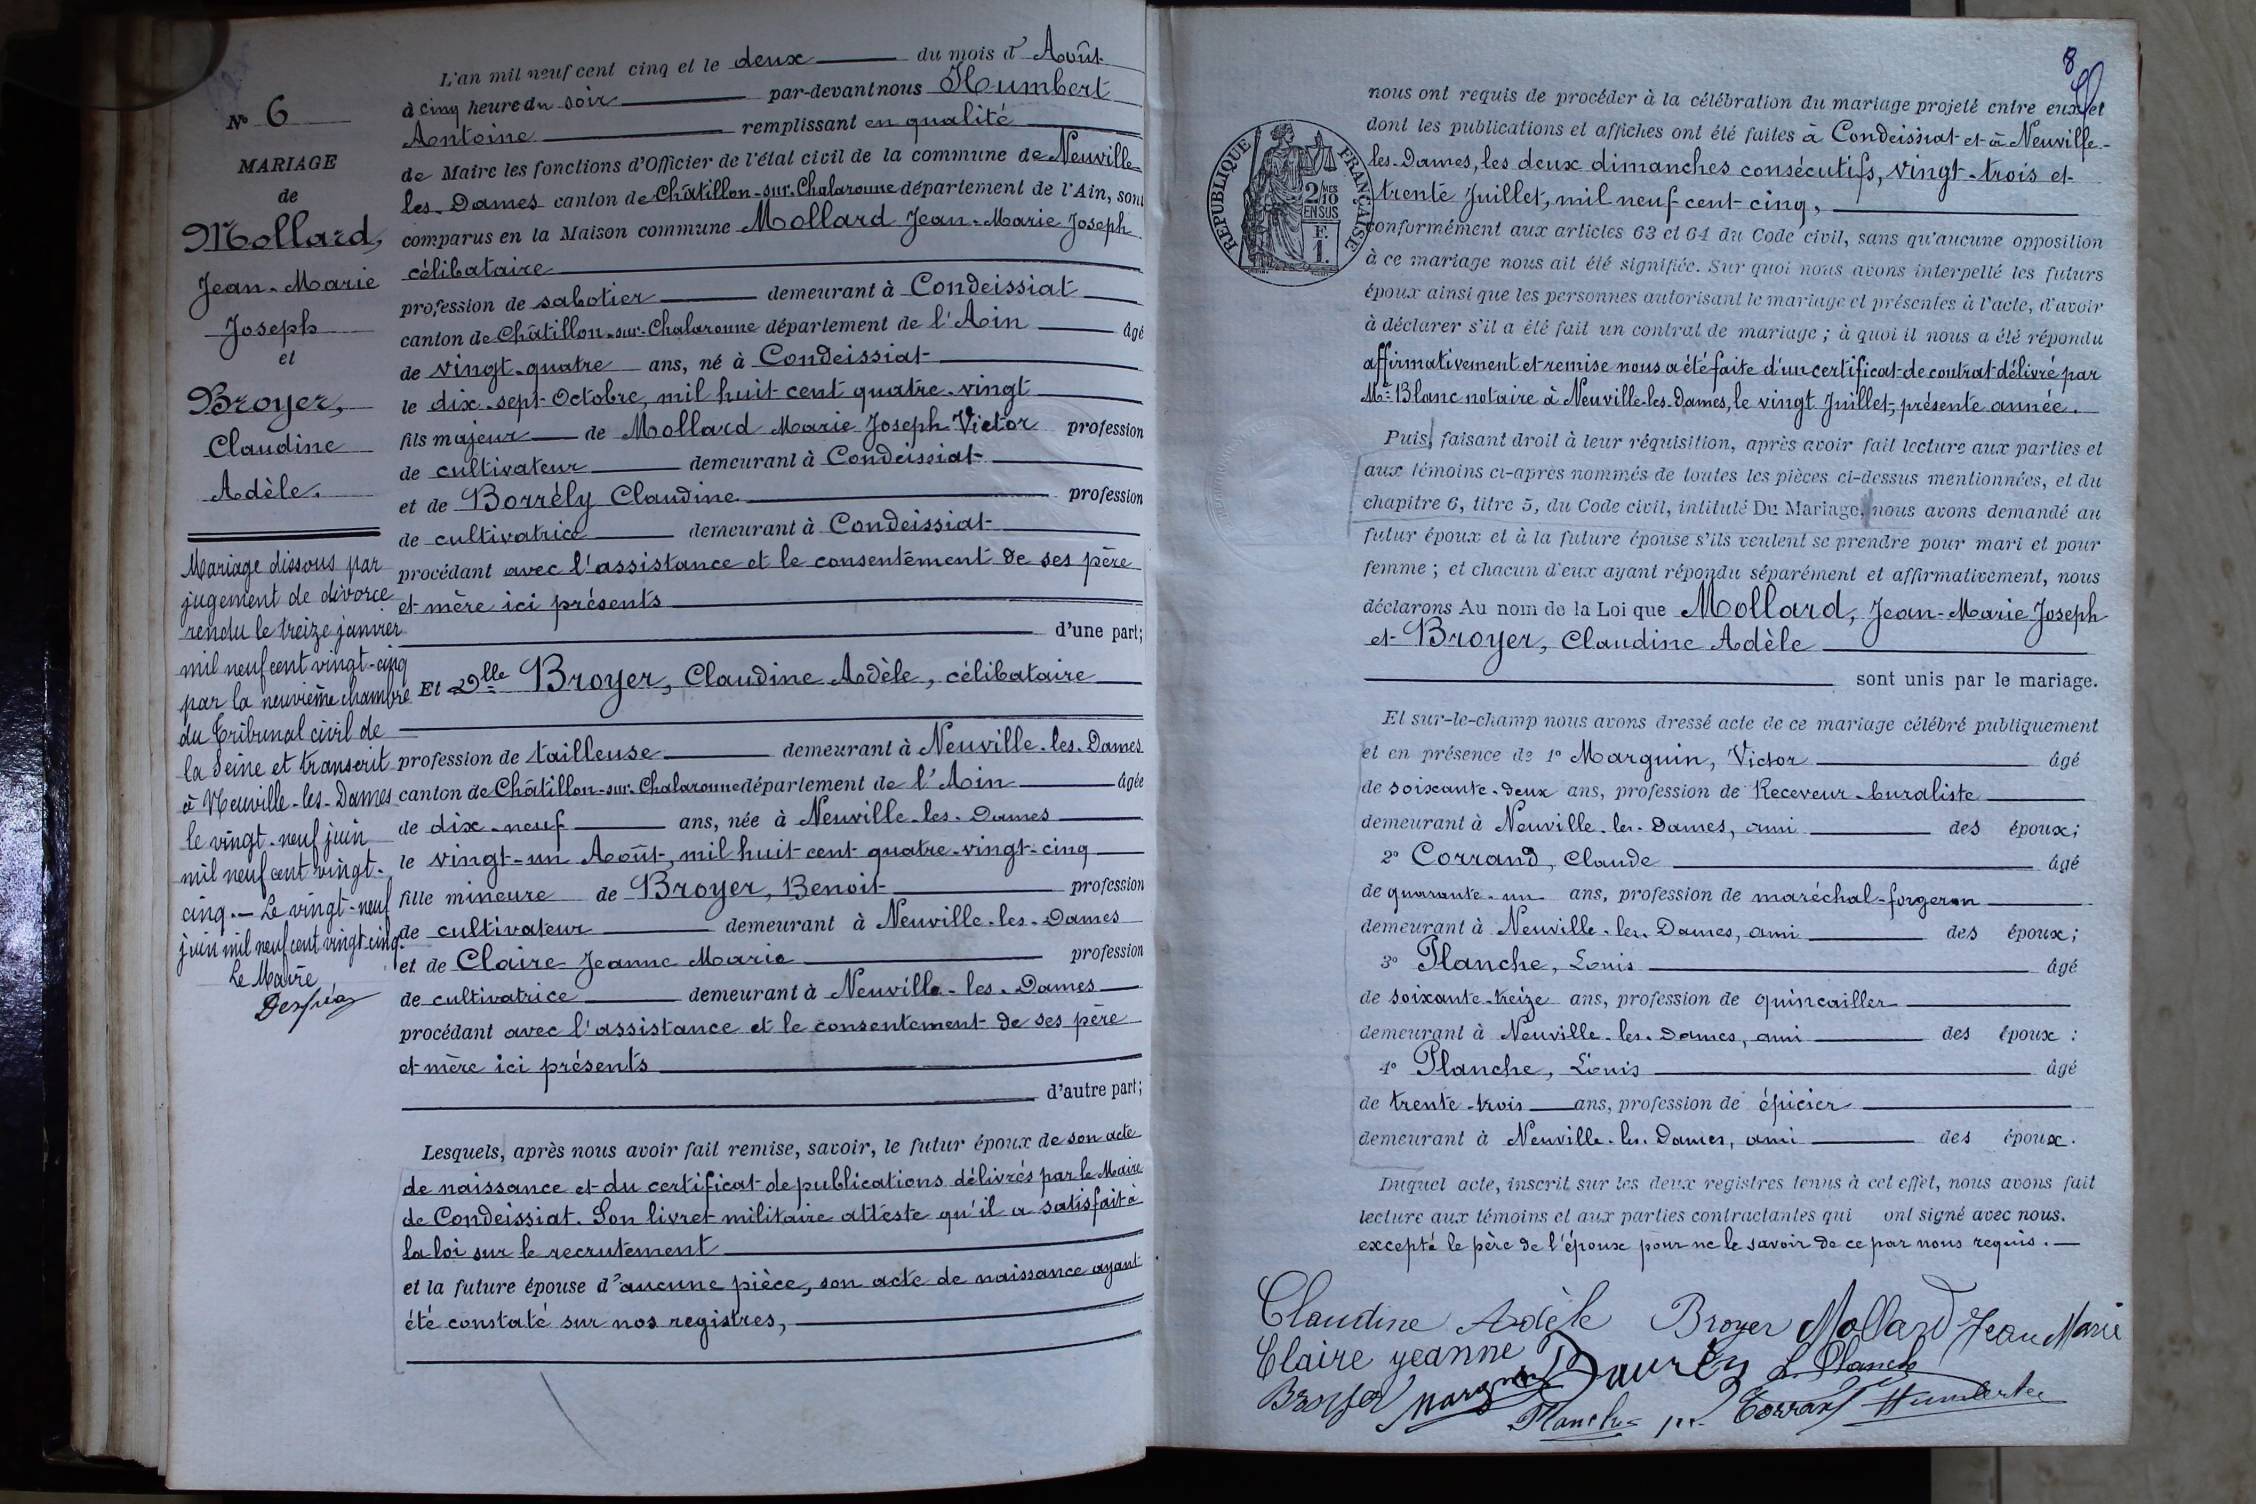 N° 6
MARIAGE
de
Mollard,
Jean-Marie
Joseph
et
Broyer,
Claudine
Adèle.
Mariage dissous par
jugement de divorce
rendu le treize janvier
mil neuf cent vingt-cinq
par la neuvième chambre
du Tribunal civil de
la Seine et transcrit
à Neuville-les-Dames
le vingt-neuf juin
mil neuf cent vingt-
cinq.— Le vingt-neuf
juin mil neuf cent vingt-cinq.
Le Maire
L'an mil neuf cent cinq et le deux du mois d'Août
à cinq heure du soir par-devant nous Humbert
Antoine remplissant en qualité
de Maire les fonctions d'Officier de l'état civil de la commune de Neuville-
les-Dames canton de Châtillon-sur-Chalaronne département de l'Ain, sont
comparus en la Maison commune Mollard Jean-Marie Joseph
célibataire
profession de sabotier demeurant à Condeissiat
canton de Châtillon-sur-Chalaronne département de l'Ain âgé
de vingt-quatre ans, né à Condeissiat
le dix-sept Octobre, mil huit cent quatre-vingt
fils majeur de Mollard Marie Joseph Victor profession
de cultivateur demeurant à Condeissiat
et de Borrély Claudine profession
de cultivatrice demeurant à Condeissiat
procédant avec l'assistance et le consentement de ses père
et mère ici présents
d'une part;
Et Dlle Broyer, Claudine Adèle, célibataire
profession de tailleuse demeurant à Neuville-les-Dames
canton de Châtillon-sur-Chalaronne département de l'Ain âgée
de dix-neuf ans, née à Neuville-les-Dames
le vingt-un Août, mil huit cent quatre-vingt-cinq
fille mineure de Broyer, Benoit profession
de cultivateur demeurant à Neuville-les-Dames
et de Claire Jeanne Marie profession
de cultivatrice demeurant à Neuville-les-Dames
procédant avec l'assistance et le consentement de ses père
et mère ici présents
d'autre part;
Lesquels, après nous avoir fait remise, savoir, le futur époux de son acte
de naissance et du certificat de publications délivrés par le Maire
de Condeissiat. Son livret militaire atteste qu'il a satisfait à
la loi sur le recrutement
et la future épouse d'aucune pièce, son acte de naissance ayant
été constaté sur nos registres,
8
nous ont requis de procéder à la célébration du mariage projeté entre eux et
dont les publications et affiches ont été faites à Condeissiat et à Neuville-
les-Dames, les deux dimanches consécutifs, vingt-trois et
trente Juillet, mil neuf cent cinq,
RÉPUBLIQUE FRANÇAISE
2/10 MES
EN SUS
F.
1.
conformément aux articles 63 et 64 du Code civil, sans qu'aucune opposition
à ce mariage nous ait été signifiée. Sur quoi nous avons interpellé les futurs
époux ainsi que les personnes autorisant le mariage et présentes à l'acte, d'avoir
à déclarer s'il a été fait un contrat de mariage; à quoi il nous a été répondu
affirmativement et remise nous a été faite d'un certificat de contrat délivré par
Me Blanc notaire à Neuville-les-Dames, le vingt Juillet, présente année.
Puis, faisant droit à leur réquisition, après avoir fait lecture aux parties et
aux témoins ci-après nommés de toutes les pièces ci-dessus mentionnées, et du
chapitre 6, titre 5, du Code civil, intitulé Du Mariage, nous avons demandé au
futur époux et à la future épouse s'ils veulent se prendre pour mari et pour
femme; et chacun d'eux ayant répondu séparément et affirmativement, nous
déclarons Au nom de la Loi que Mollard, Jean-Marie Joseph
et Broyer, Claudine Adèle
sont unis par le mariage.
Et sur-le-champ nous avons dressé acte de ce mariage célébré publiquement
et en présence de 1° Marguin, Victor âgé
de soixante-deux ans, profession de Receveur-buraliste
demeurant à Neuville-les-Dames, ami des époux;
2° Corrand, Claude âgé
de quarante-un ans, profession de maréchal-forgeron
demeurant à Neuville-les-Dames, ami des époux;
3° Planche, Louis âgé
de soixante-treize ans, profession de quincailler
demeurant à Neuville-les-Dames, ami des époux:
4° Planche, Louis âgé
de trente-trois ans, profession de épicier
demeurant à Neuville-les-Dames, ami des époux.
Duquel acte, inscrit sur les deux registres tenus à cet effet, nous avons fait
lecture aux témoins et aux parties contractantes qui ont signé avec nous.
excepté le père de l'époux pour ne le savoir de ce par nous requis.—
Claudine Adèle Broyer Mollard Jean Marie
Claire jeanne L. Planche
Broyer Marguin
Planche Corrand Humbert